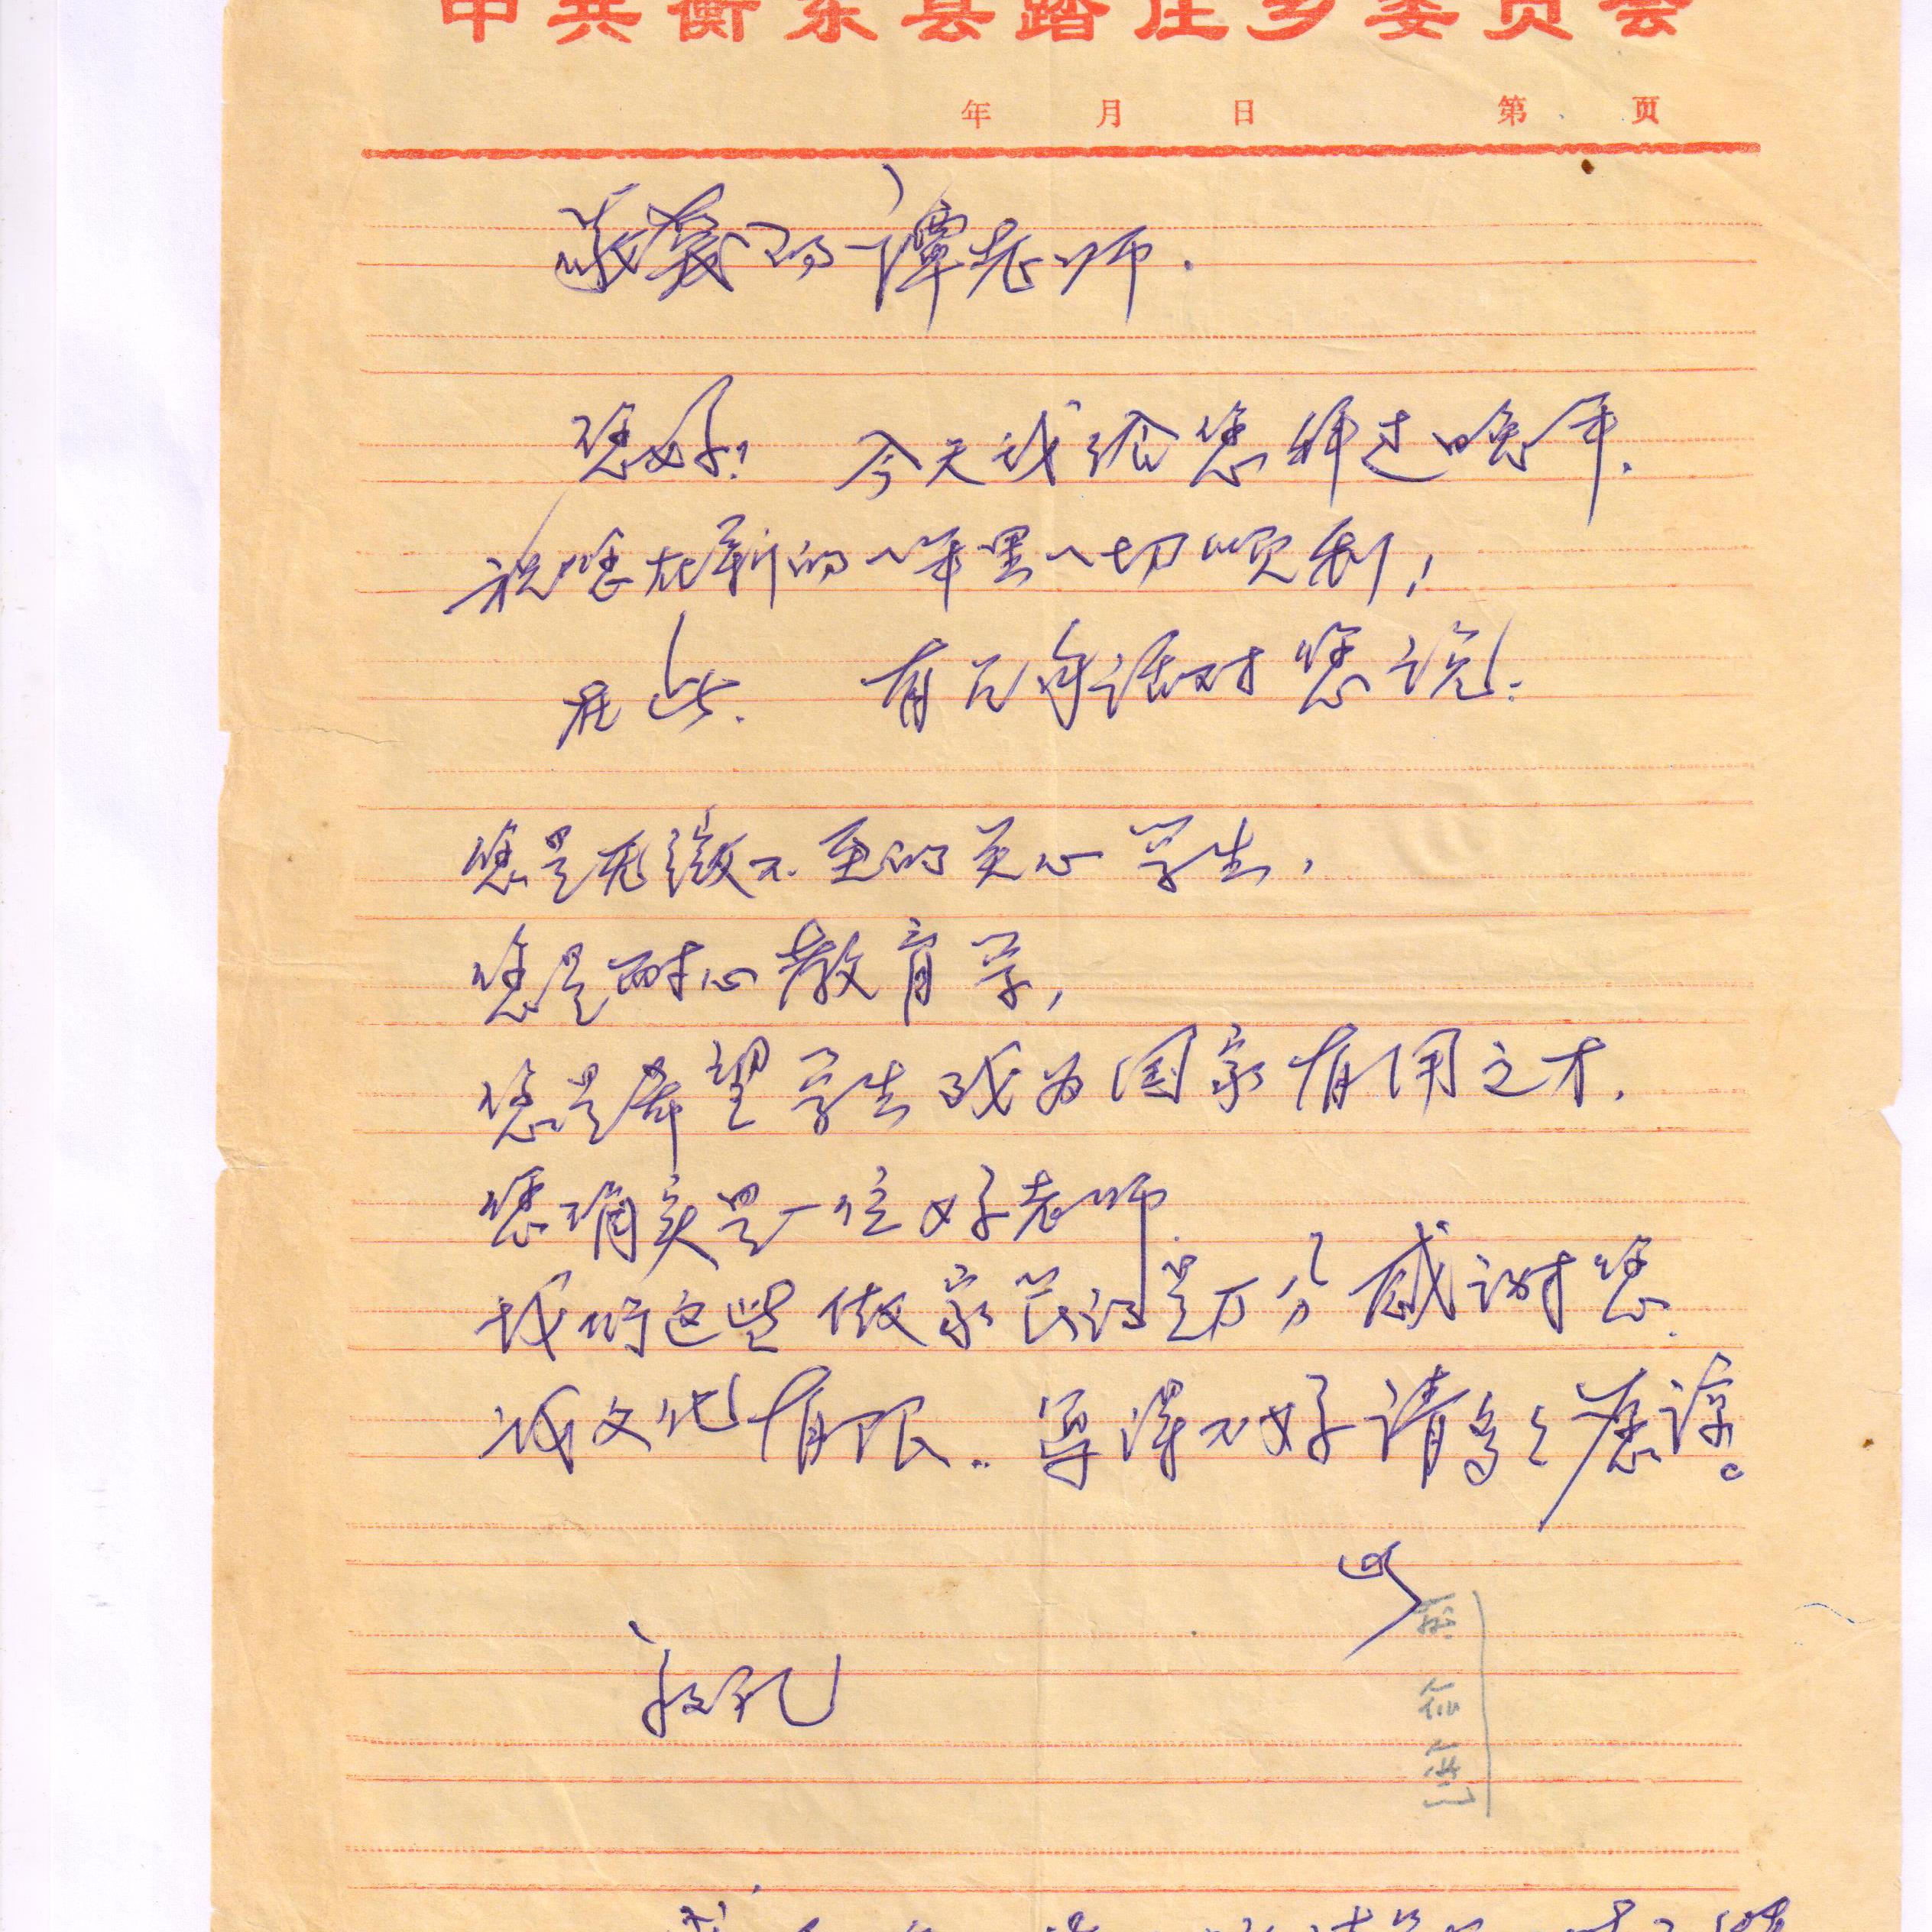 中共衡东县踏庄乡委员会
年 月 日 第 页
敬爱的谭老师.
您好! 今天我给您拜过晚年.
祝您在新的一年里一切顺利!
在此. 有几句话对您说:
您是无微不至的关心学生,
您是耐心教育学,
您是希望学生成为国家有用之才.
您确实是一位好老师.
我们这些做家长的是万分感谢您.
我文化有限.. 写得不好请多多原谅。
此
敬礼